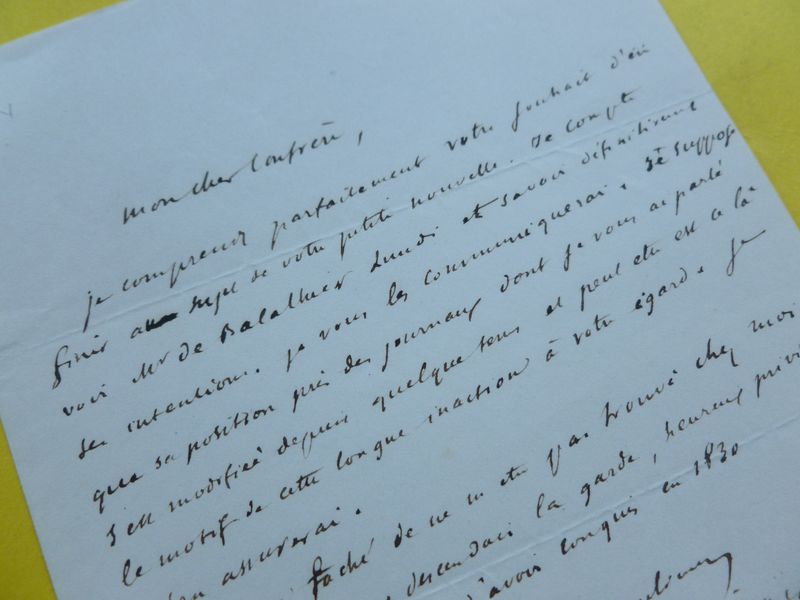 mon cher Confrère,
je comprends parfaitement votre souhait d'en
finir au sujet de votre petite nouvelle. Je compte
voir Mr de Balathier Lundi et savoir définitivement
ses intentions. je vous les communiquerai. Je suppose
que sa position près des journaux dont je vous ai parlé
s'est modifiée depuis quelque tems et peut etre est ce là
le motif de cette longue inaction à votre égard. je
m'en assurerai.
faché de ne m'etre pas trouvé chez moi
descendais la garde, heureux
d'avoir conquis en 1830